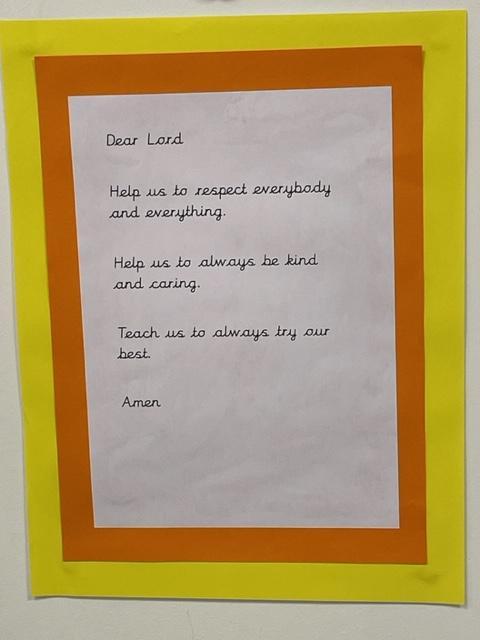 Dear Lord
Help us to respect everybody
and everything.
Help us to always be kind
and caring.
Teach us to always try our
best.
Amen